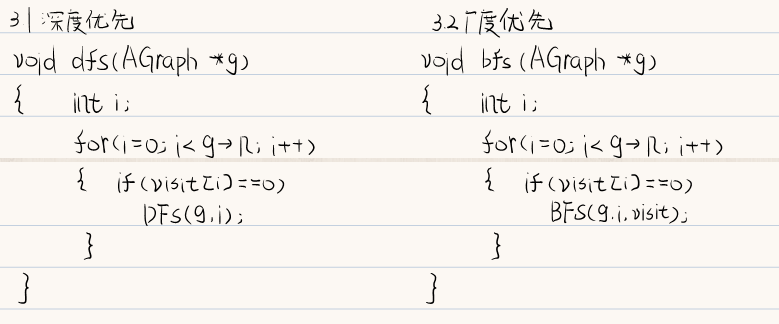 3.1 深度优先
void dfs(AGraph *g)
{ int i;
for(i=0; i<g→n; i++)
{ if(visit[i]==0)
DFS(g,i);
}
}
3.2 广度优先
void bfs(AGraph *g)
{ int i;
for(i=0; i<g→n; i++)
{ if(visit[i]==0)
BFS(g,i,visit);
}
}